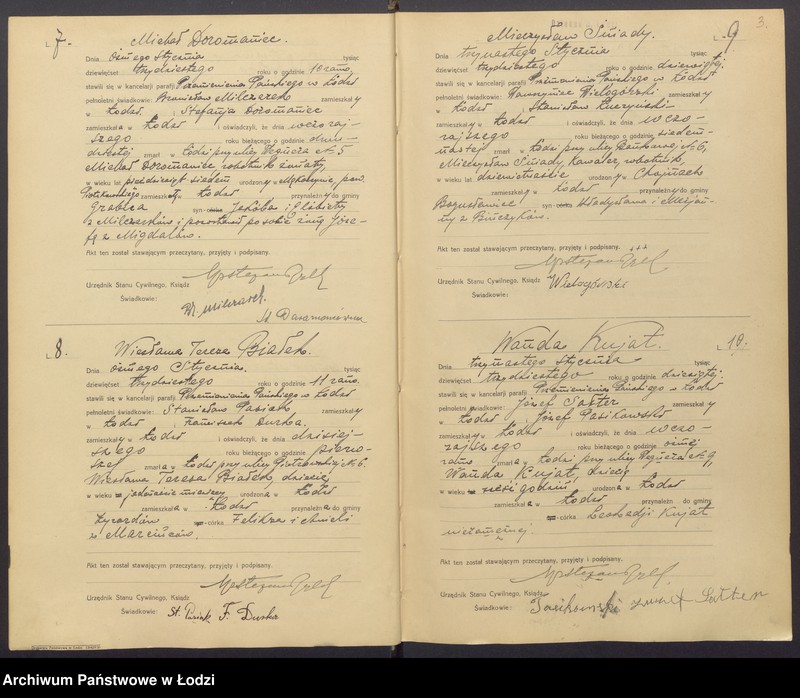 7.
Michał Doromaniec.
Dnia ósmego Stycznia tysiąc
dziewięćset trzydziestego roku o godzinie 10 rano,
stawili się w kancelarji parafji Przemienienia Pańskiego w Łodzi
pełnoletni świadkowie: Bronisław Milczarek zamieszkały
w Łodzi i Stefanja Doromaniec
zamieszkała w Łodzi i oświadczyli, że dnia wczoraj-
szego roku bieżącego o godzinie
zmarł w Łodzi przy ulicy 5
Michał Doromaniec robotnik żonaty
w wieku lat pięćdziesiąt siedem urodzony w pow.
Piotrkowskiego zamieszkały w Łodzi przynależny do gminy
Grabica syn-córka Jakóba i Elżbiety
z Milczarków i pozostawił po sobie żonę Józe-
fę z Migdałów.
Akt ten został stawającym przeczytany, przyjęty i podpisany.
Urzędnik Stanu Cywilnego, Ksiądz
Świadkowie:
8.
Wiesława Teresa Białek.
Dnia ósmego Stycznia tysiąc
dziewięćset trzydziestego roku o godzinie 11 rano.
stawili się w kancelarji parafji Przemienienia Pańskiego w Łodzi
pełnoletni świadkowie: Stanisław Pasiak zamieszkały
w Łodzi i Franciszek Duszka.
zamieszkały w Łodzi i oświadczyli, że dnia dzisiej-
szego roku bieżącego o godzinie pierw-
szej zmarła w Łodzi przy ulicy 6.
Wiesława Teresa Białek, dziecię
w wieku jedenaście miesięcy urodzona w Łodzi
zamieszkała w Łodzi przynależna do gminy
Żyrardów syn-córka Feliksa i Anieli
z Marciniaków.
Akt ten został stawającym przeczytany, przyjęty i podpisany.
Urzędnik Stanu Cywilnego, Ksiądz
Świadkowie: St. Pasiak F. Duszka
3.
9
Mieczysław Śniady.
Dnia trzynastego Stycznia tysiąc
dziewięćset trzydziestego roku o godzinie dziewiątej
stawili się w kancelarji parafji Przemienienia Pańskiego w Łodzi
pełnoletni świadkowie: Wielogórski zamieszkały
w Łodzi i Stanisław
zamieszkały w Łodzi i oświadczyli, że dnia wczo-
rajszego roku bieżącego o godzinie siedem-
nastej zmarł w Łodzi przy ulicy 6,
Mieczysław Śniady, kawaler robotnik,
w wieku lat dziewiętnaście urodzony w Chojnach
zamieszkały w Łodzi przynależny do gminy
Bogusławice syn-córka Władysława i Marjan-
ny z
Akt ten został stawającym przeczytany, przyjęty i podpisany.
Urzędnik Stanu Cywilnego, Ksiądz
Świadkowie: Wielogórski
10.
Wanda Kujat.
Dnia trzynastego Stycznia tysiąc
dziewięćset trzydziestego roku o godzinie dziesiątej.
stawili się w kancelarji parafji Przemienienia Pańskiego w Łodzi
pełnoletni świadkowie: Józef zamieszkały
w Łodzi i Józef Pasikowski
zamieszkały w Łodzi i oświadczyli, że dnia wczo-
rajszego roku bieżącego o godzinie ósmej
rano zmarła w Łodzi przy ulicy 9,
Wanda Kujat, dziecię
w wieku sześć godzin urodzona w Łodzi
zamieszkała w Łodzi przynależna do gminy
syn-córka Leokadji Kujat
niezamężnej.
Akt ten został stawającym przeczytany, przyjęty i podpisany.
Urzędnik Stanu Cywilnego, Ksiądz
Świadkowie:
Archiwum Państwowe w Łodzi